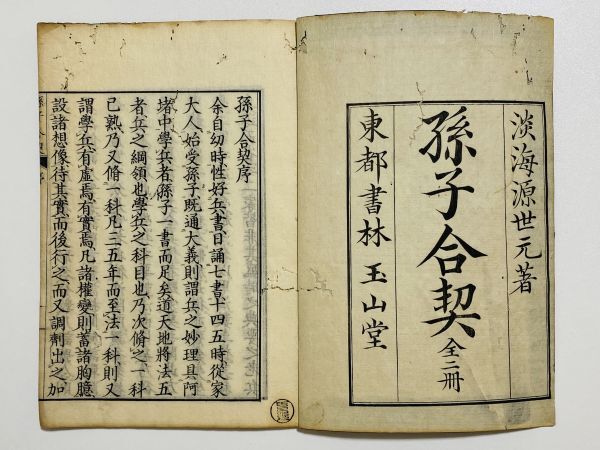 淡海源世元著
孫子合契全二冊
東都書林 玉山堂
孫子合契序
余自幼時性好兵書日誦七書十四五時從家
大人始受孫子既通大義則謂兵之妙理具阿
堵中學兵者孫子一書而足矣道天地將法五
者兵之綱領也學兵之科目也乃次脩一科一科
已熟乃又脩一科凡二五年而至法一科則又
謂學兵有虛焉有實焉凡諸權變則蓄諸胸臆
設諸想像待其實而後行之而又調劑出之加
孫子合契 序